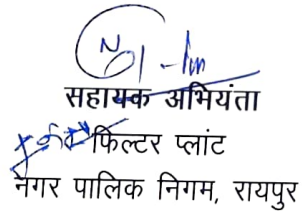 सहायक अभियंता
फिल्टर प्लांट
नगर पालिक निगम, रायपुर